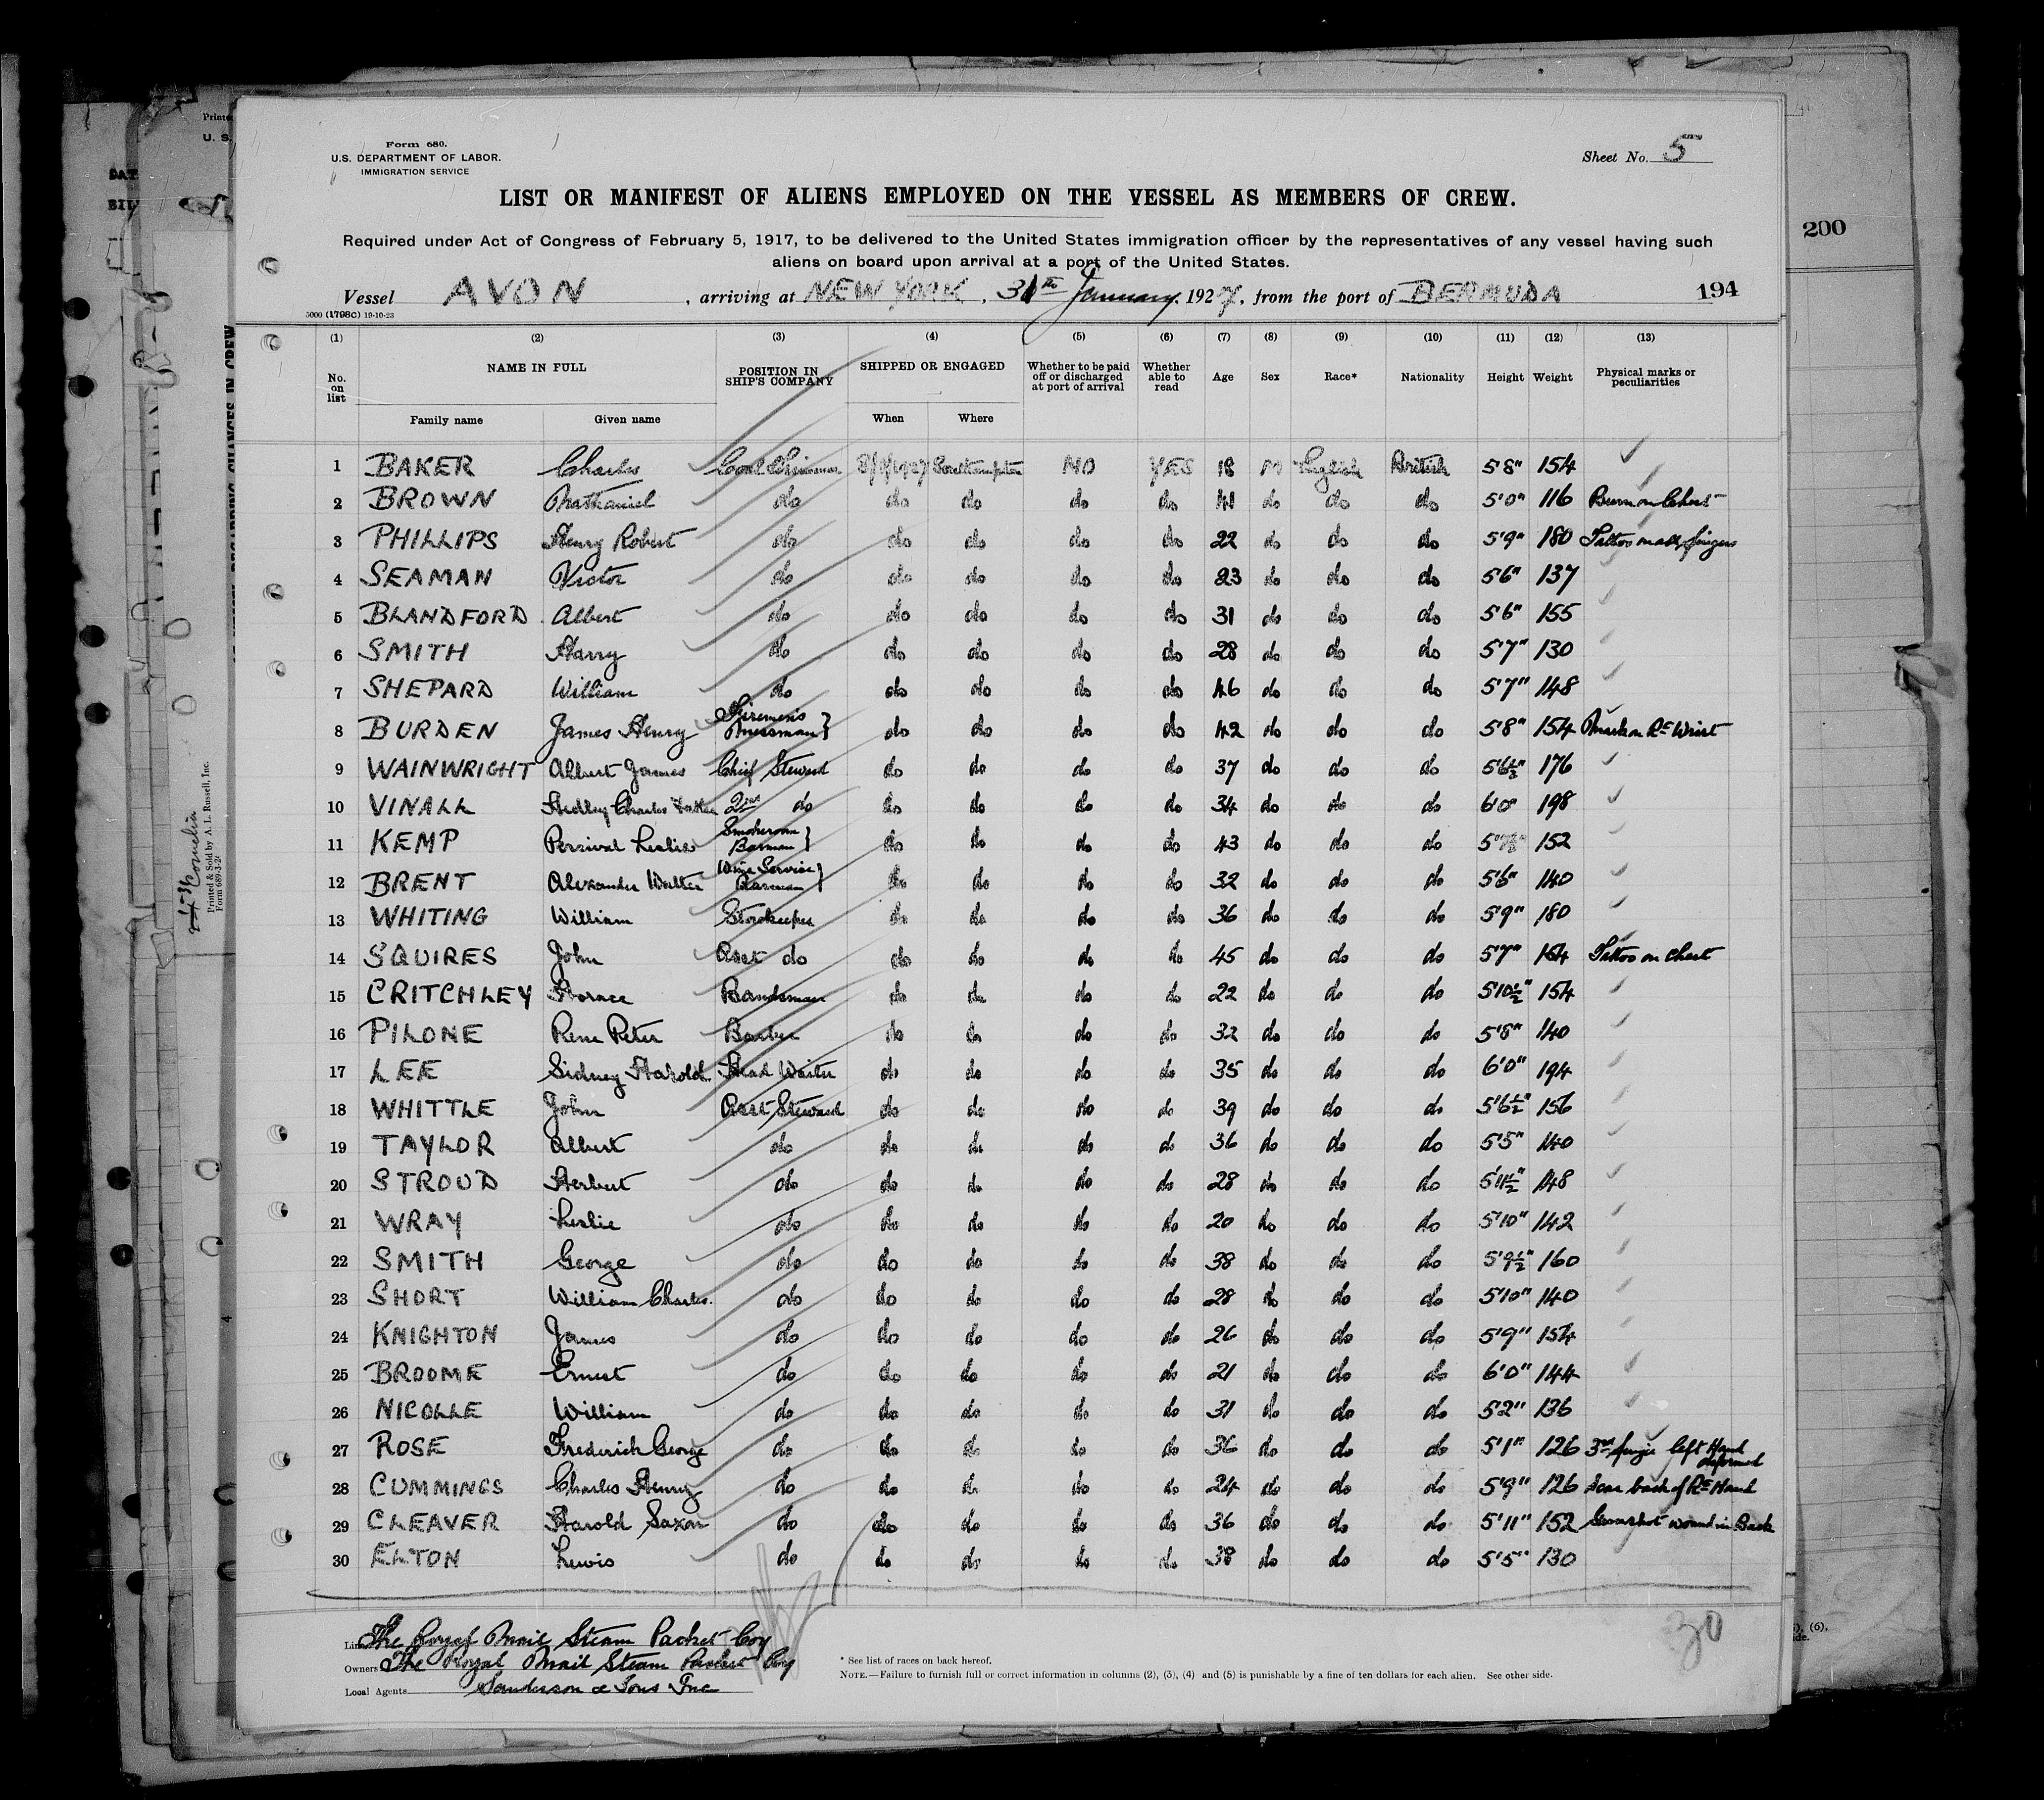 Form 680.
U.S. DEPARTMENT OF LABOR.
IMMIGRATION SERVICE
Sheet No. 5
LIST OR MANIFEST OF ALIENS EMPLOYED ON THE VESSEL AS MEMBERS OF CREW.
Required under Act of Congress of February 5, 1917, to be delivered to the United States immigration officer by the representatives of any vessel having such
aliens on board upon arrival at a port of the United States.
200
Vessel AVON, arriving at NEW YORK, 31th January, 1927, from the port of BERMUDA 194
5000 (1798C) 19-10-23
(1) (2) (3) (4) (5) (6) (7) (8) (9) (10) (11) (12) (13)
No. on list NAME IN FULL POSITION IN SHIP'S COMPANY SHIPPED OR ENGAGED Whether to be paid off or discharged at port of arrival Whether able to read Age Sex Race* Nationality Height Weight Physical marks or peculiarities
Family name Given name When Where
1 BAKER Charles Coal Trimmer Southampton NO YES 18 M English British 5'8" 154
2 BROWN Nathaniel do do do do do 41 do do do 5'0" 116 Burn on Chest
3 PHILLIPS Henry Robert do do do do do 22 do do do 5'9" 180 Tattoo marks fingers
4 SEAMAN Victor do do do do do 23 do do do 5'6" 137
5 BLANDFORD Albert do do do do do 31 do do do 5'6" 155
6 SMITH Harry do do do do do 28 do do do 5'7" 130
7 SHEPARD William do do do do do 46 do do do 5'7" 148
8 BURDEN James Henry Firemen's Messman } do do do do 42 do do do 5'8" 154 Mark on Rt Wrist
9 WAINWRIGHT Albert James Chief Steward do do do do 37 do do do 5'6½" 176
10 VINALL Hedley Charles 2nd do do do do do 34 do do do 6'0" 198
11 KEMP Percival Leslie Smokeroom Barman } do do do do 43 do do do 152
12 BRENT Alexander Walter Wine Service Barman } do do do do 32 do do do 5'6" 140
13 WHITING William Storekeeper do do do do 36 do do do 5'9" 180
14 SQUIRES John Asst do do do do do 45 do do do 5'7" 164 Tattoo on Chest
15 CRITCHLEY Horace Bandsman do do do do 22 do do do 5'10½" 154
16 PILONE Rene Peter Barber do do do do 32 do do do 5'8" 140
17 LEE Sidney Harold Head Waiter do do do do 35 do do do 6'0" 194
18 WHITTLE John Asst Steward do do do do 39 do do do 5'6½" 156
19 TAYLOR Albert do do do do do 36 do do do 5'5" 140
20 STROUD Herbert do do do do do 28 do do do 5'11½" 148
21 WRAY Leslie do do do do do 20 do do do 5'10" 142
22 SMITH George do do do do do 38 do do do 5'9½" 160
23 SHORT William Charles. do do do do do 28 do do do 5'10" 140
24 KNIGHTON James do do do do do 26 do do do 5'9" 154
25 BROOME Ernest do do do do do 21 do do do 6'0" 144
26 NICOLLE William do do do do do 31 do do do 5'2" 136
27 ROSE Frederick George do do do do do 36 do do do 5'1" 126 3rd finger left Hand deformed
28 CUMMINGS Charles Henry do do do do do 24 do do do 5'9" 126 Scar back of Rt Hand
29 CLEAVER Harold Saxon do do do do do 36 do do do 5'11" 152 Gunshot wound in Back
30 ELTON Lewis do do do do do 38 do do do 5'5" 130
30
Line The Royal Mail Steam Packet Coy
Owners The Royal Mail Steam Packet Coy
Local Agents Sanderson & Sons Inc
* See list of races on back hereof.
NOTE.—Failure to furnish full or correct information in columns (2), (3), (4) and (5) is punishable by a fine of ten dollars for each alien. See other side.
Printed & Sold by A. I. Russell, Inc.